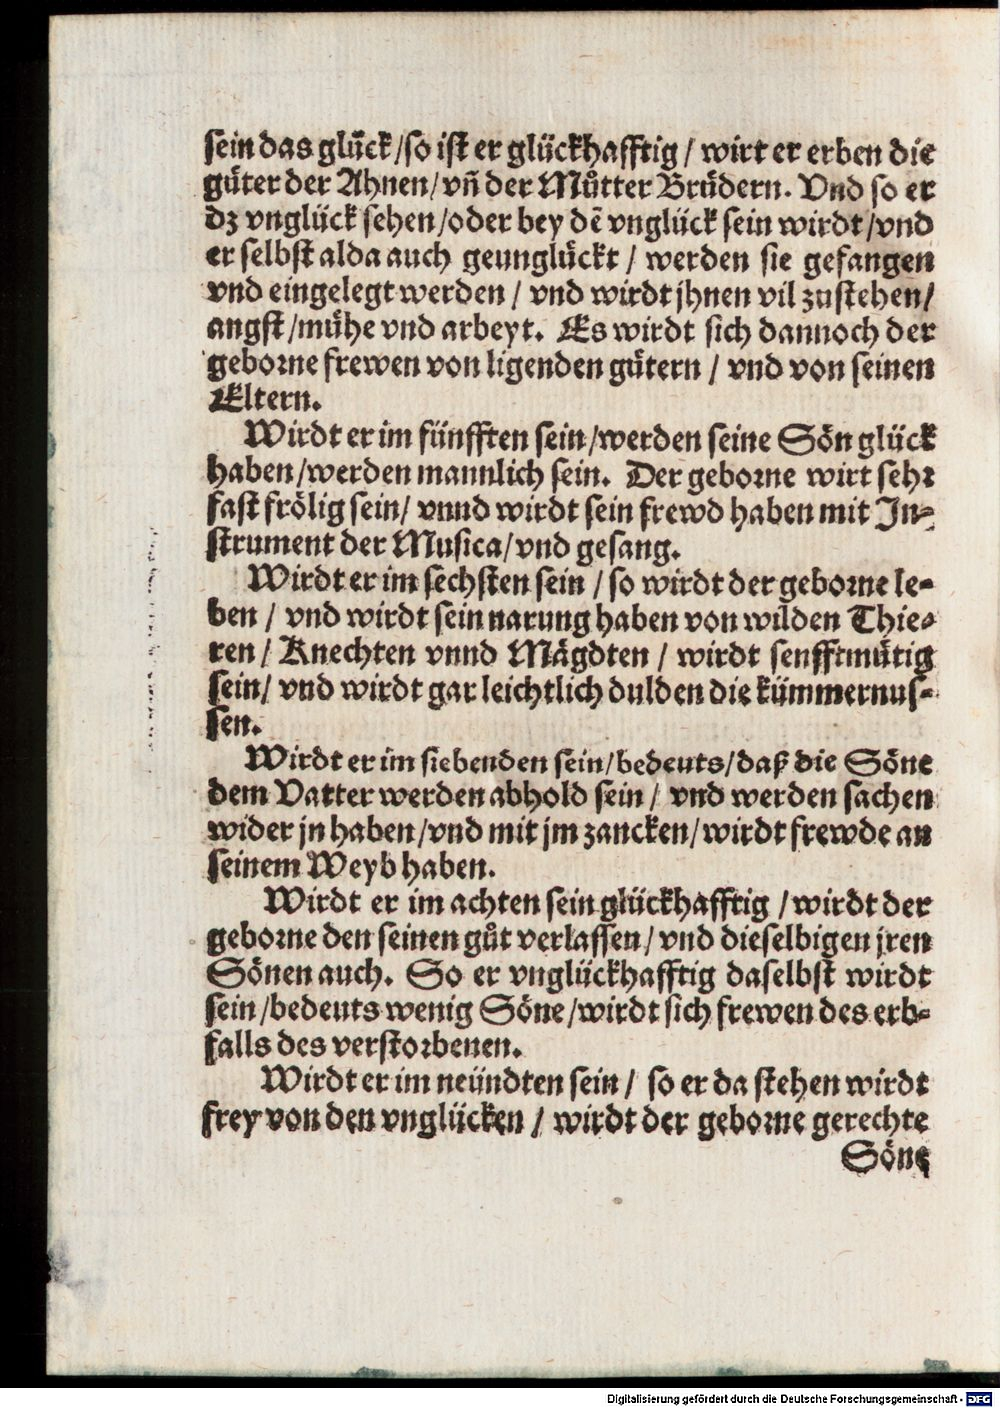 sein das glück/so ist er glückhafftig / wirt er erben die
güter der Ahnen/vñ der Můtter Brüdern. Vnd so er
dz vnglück sehen/oder bey dē vnglück sein wirdt/vnd
er selbst alda auch geunglückt / werden sie gefangen
vnd eingelegt werden / vnd wirdt jhnen vil zustehen/
angst/mühe vnd arbeyt. Es wirdt sich dannoch der
geborne frewen von ligenden gütern / vnd von seinen
Eltern.
Wirdt er im fünfften sein/werden seine Sön glück
haben/werden mannlich sein. Der geborne wirt sehr
fast frölig sein/ vnnd wirdt sein frewd haben mit In-
strument der Musica/vnd gesang.
Wirdt er im sechsten sein / so wirdt der geborne le-
ben / vnd wirdt sein narung haben von wilden Thie-
ren / Knechten vnnd Mägdten / wirdt senfftmütig
sein/ vnd wirdt gar leichtlich dulden die kümmernus-
sen.
Wirdt er im siebenden sein/bedeuts/daß die Söne
dem Vatter werden abhold sein / vnd werden sachen
wider jn haben/vnd mit jm zancken/wirdt frewde an
seinem Weyb haben.
Wirdt er im achten sein glückhafftig / wirdt der
geborne den seinen gůt verlassen/ vnd dieselbigen jren
Sönen auch. So er vnglückhafftig daselbst wirdt
sein/bedeuts wenig Söne/wirdt sich frewen des erb-
falls des verstorbenen.
Wirdt er im neündten sein / so er da stehen wirdt
frey von den vnglücken / wirdt der geborne gerechte
Söne
Digitalisierung gefördert durch die Deutsche Forschungsgemeinschaft - DFG